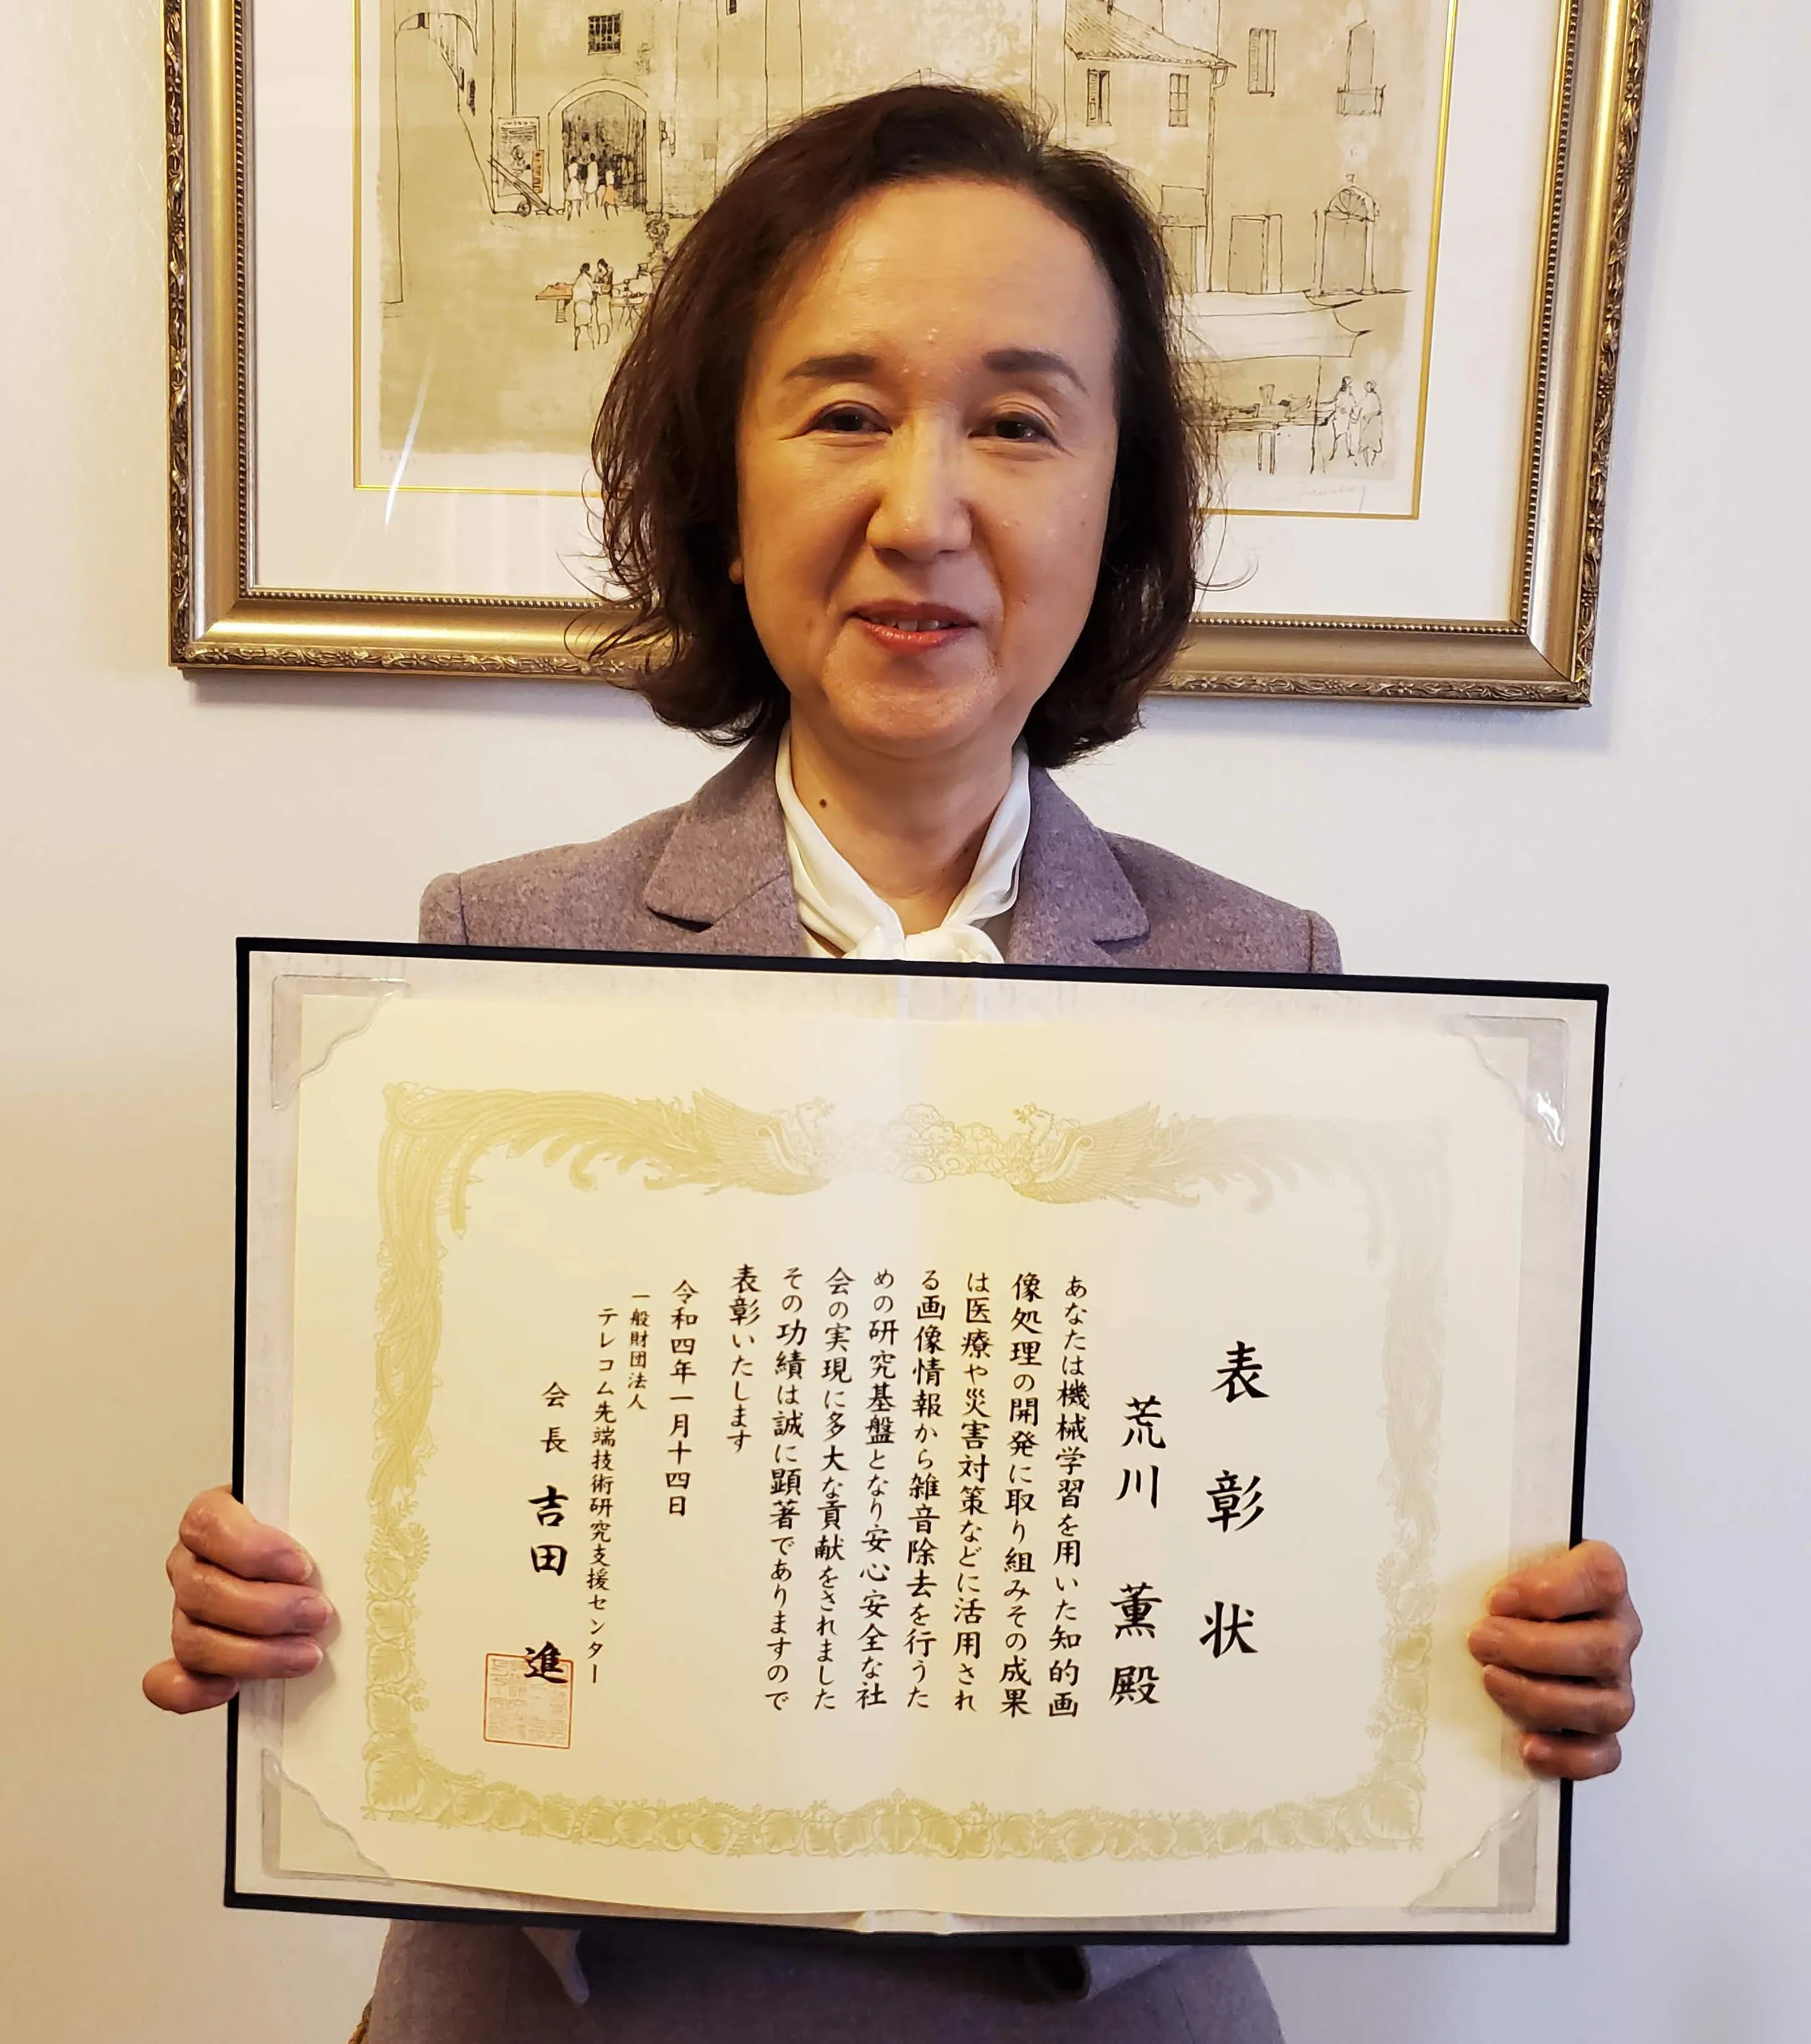 表彰状
荒川 薫 殿
あなたは機械学習を用いた知的画
像処理の開発に取り組みその成果
は医療や災害対策などに活用され
る画像情報から雑音除去を行うた
めの研究基盤となり安心安全な社
会の実現に多大な貢献をされました
その功績は誠に顕著でありますので
表彰いたします
令和四年一月十四日
一般財団法人
テレコム先端技術研究支援センター
会長 吉田 進